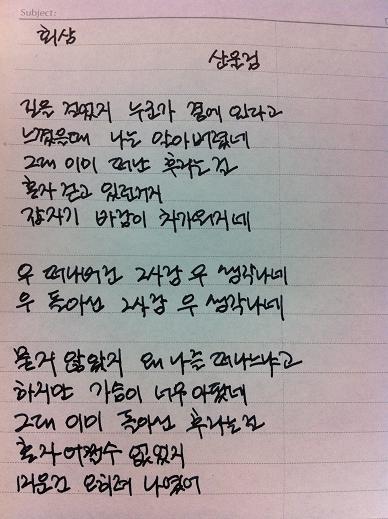 Subject:
회상
산울림
길을 걸었지 누군가 곁에 있다고
느꼈을때 나는 알아버렸네
그대 이미 떠난 후라는걸
혼자 걷고 있던거지
갑자기 바람이 차가워지네
우 떠나버린 그사람 우 생각나네
우 돌아선 그사람 우 생각나네
묻지 않았지 왜 나를 떠나느냐고
하지만 가슴이 너무 아팠네
그대 이미 돌아선 후라는걸
혼자 어쩔수 없었지
미운건 오히려 나였어